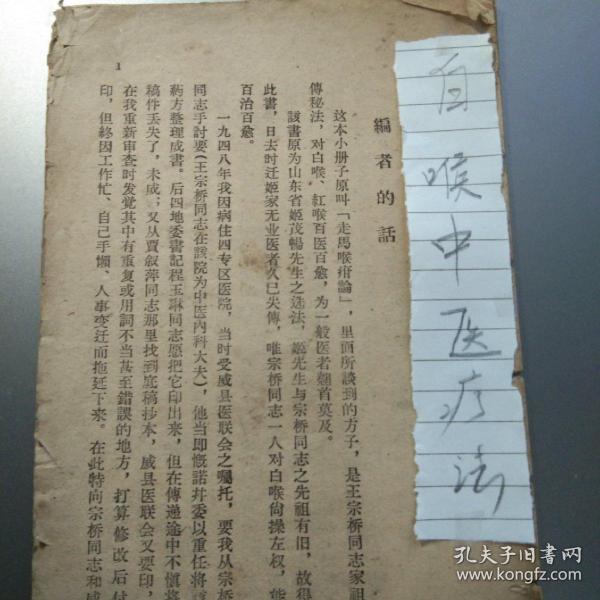 編者的話
这本小册子原叫「走馬喉疳論」，里面所談到的方子，是王宗桥同志家祖
傳秘法，对白喉、紅喉百医百愈，为一般医者翘首莫及。
該書原为山东省姬茂暢先生之选法，姬先生与宗桥同志之先祖有旧，故得
此書，日去时迁姬家无业医者久已失傳，唯宗桥同志一人对白喉尙操左权，能
百治百愈。
一九四八年我因病住四专区医院，当时受威县医联会之囑托，要我从宗桥
同志手討要（王宗桥同志在該院为中医內科大夫），他当即慨諾幷委以重任将
葯方整理成書。后四地委書記程玉琳同志愿把它印出来，但在傳递途中不慎将
稿件丢失了，未成；又从賈叙萍同志那里找到底稿抄本，威县医联会又要印，
在我重新审查时发觉其中有重复或用詞不当甚至錯誤的地方，打算修改后付
印，但終因工作忙、自己手懶、人事变迁而拖延下来。在此特向宗桥同志和
1
白喉中医疗法
孔夫子旧书网
www.kongfz.com